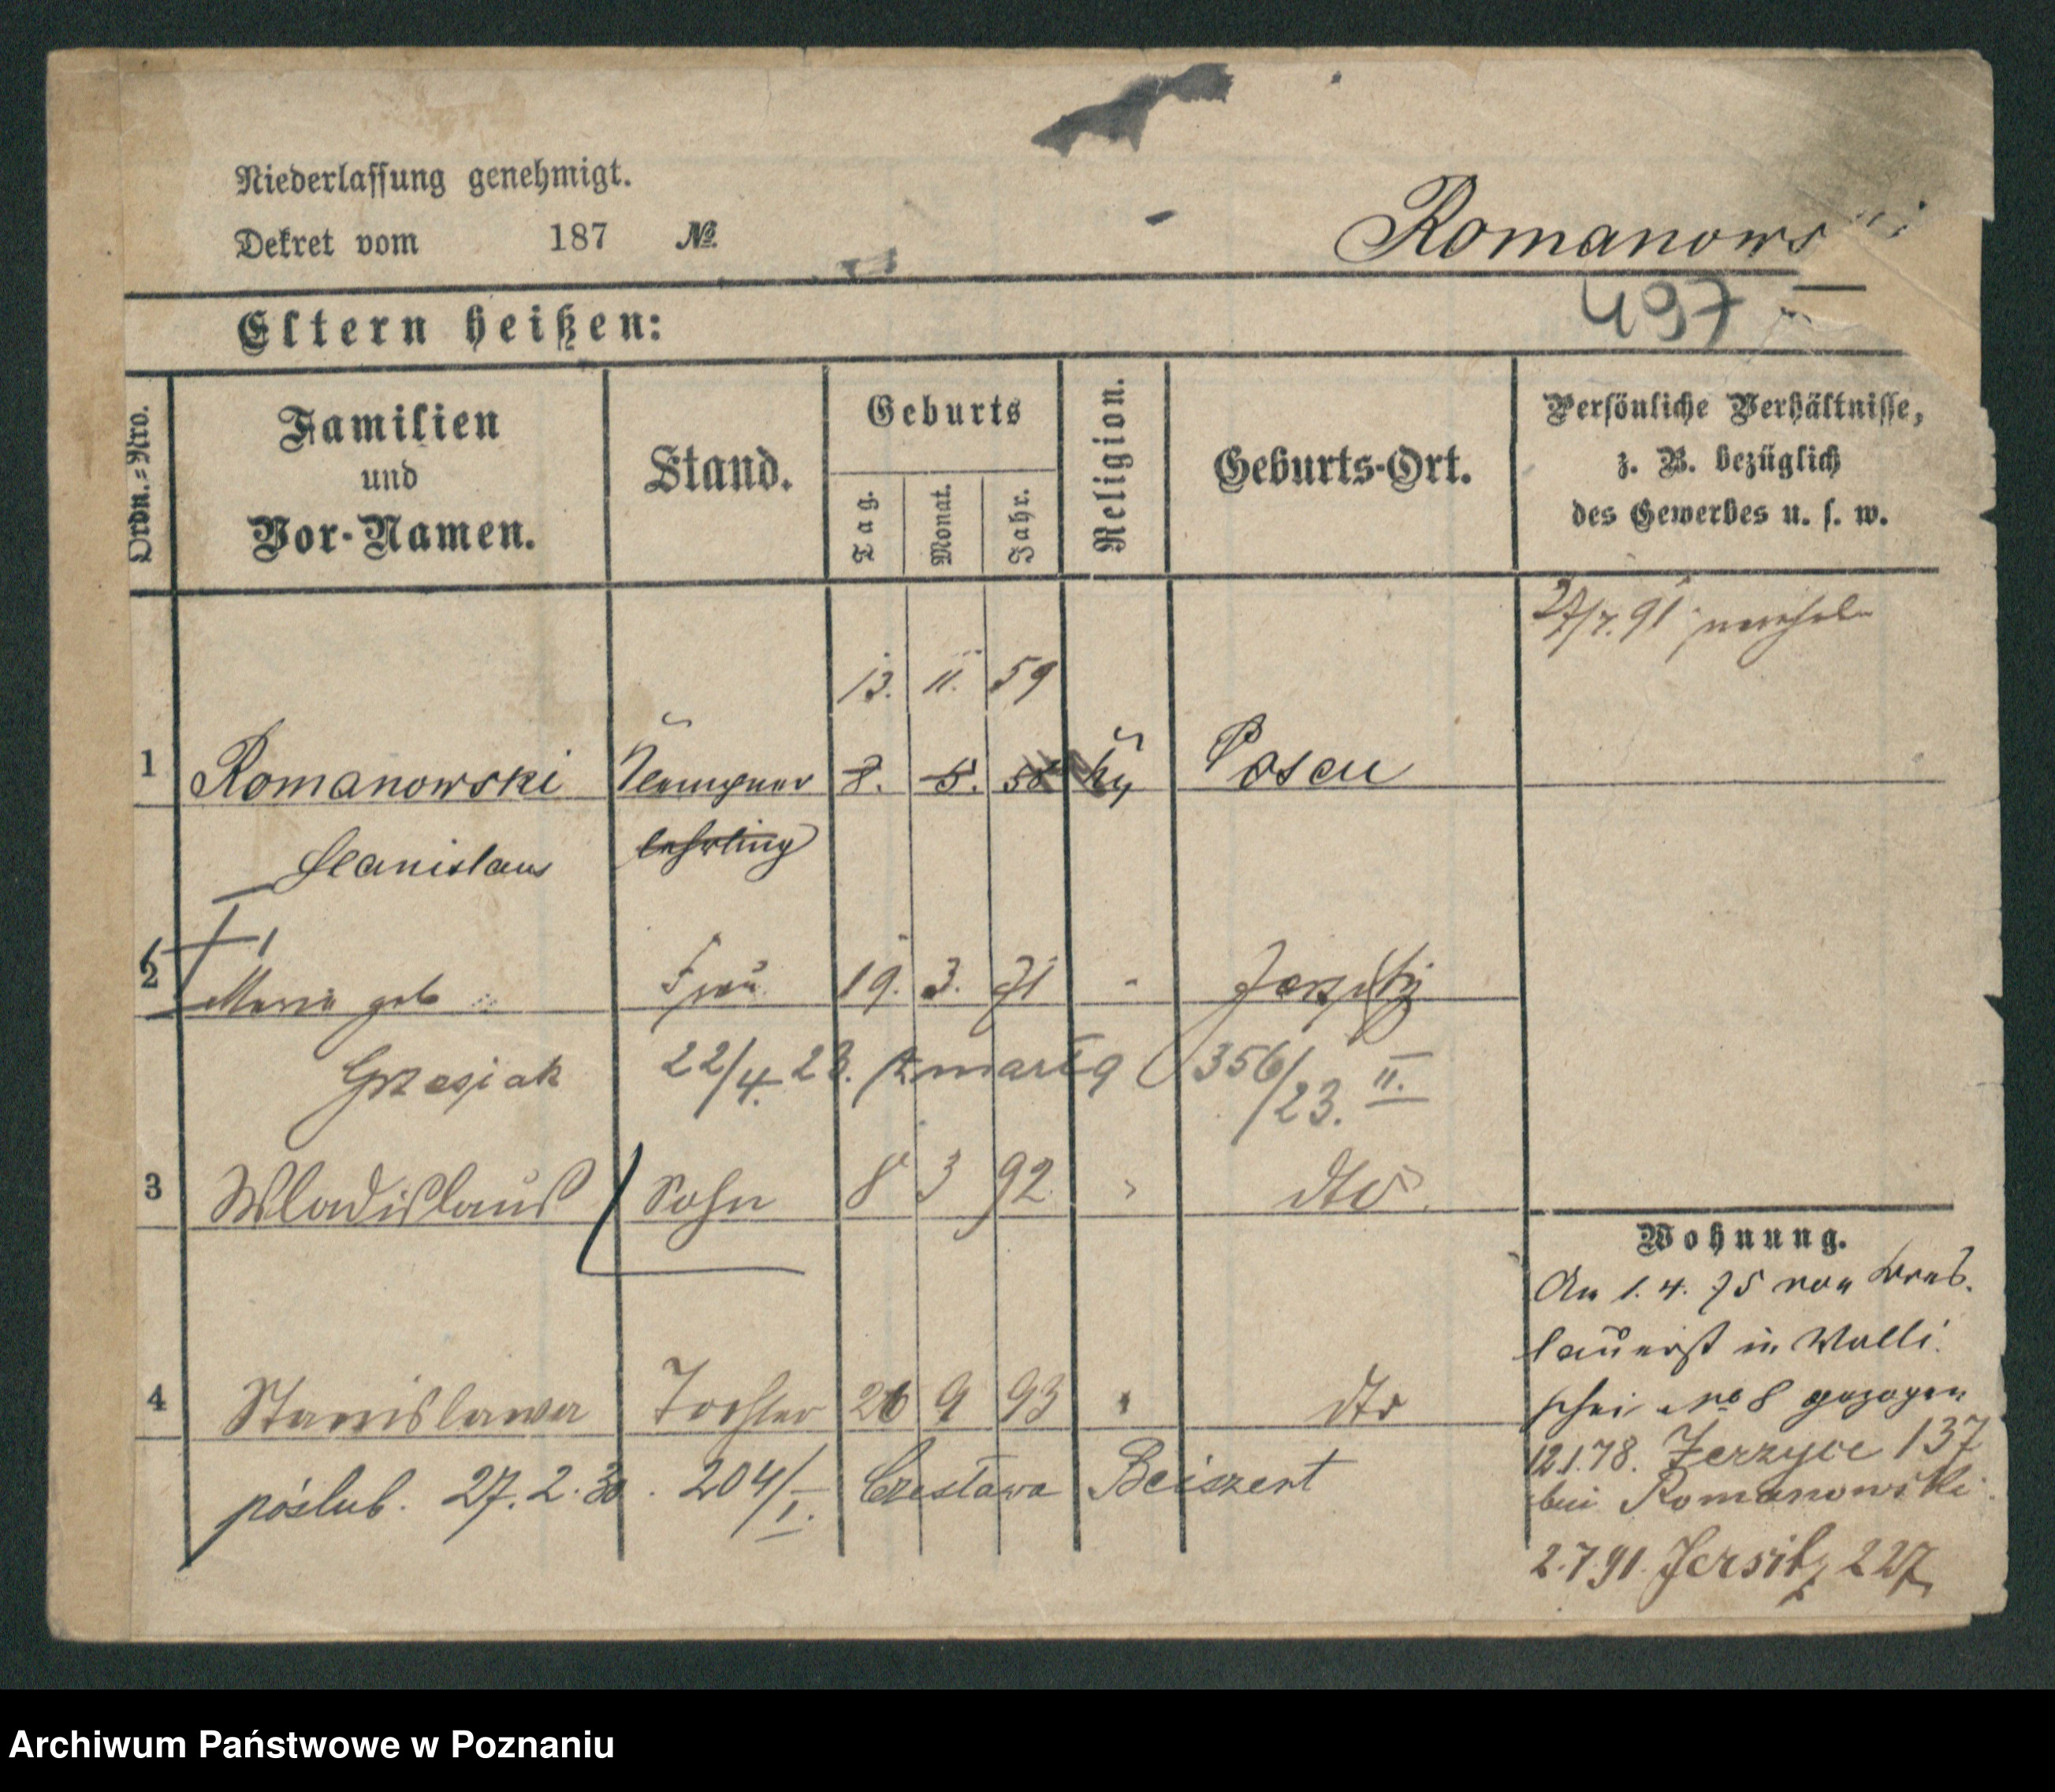 Niederlassung genehmigt.
Romanowski
Dekret vom 187 №
497
Eltern heißen:
Ordn.=Nro.
Familien
und
Vor-Namen.
Stand.
Geburts
Tag.
Monat.
Jahr.
Religion.
Geburts-Ort.
Persönliche Verhältnisse,
z. B. bezüglich
des Gewerbes u. s. w.
27/7. 91
13. 11. 59
1 Romanowski Klempner 8. 5. 58 Posen
Stanislaus lehrling
2 Maria geb Frau 19. 3. 71 " Jersitz
Grzesiak 22/4. 23. zmarła 356/23. II.
3 Wladislaus Sohn 8 3 92 " dto
Wohnung.
An 1. 4. 75 von Bres-
lauerst in Walli-
schei No 8 gezogen
4 Stanislawa Tochter 26 9 93 " dto
12.1.78. Jerzyce 137
poślub. 27. 2. 30. 204/I. Czesława Beiszert
bei Romanowski.
2.7.91. Jersitz 227,
Archiwum Państwowe w Poznaniu